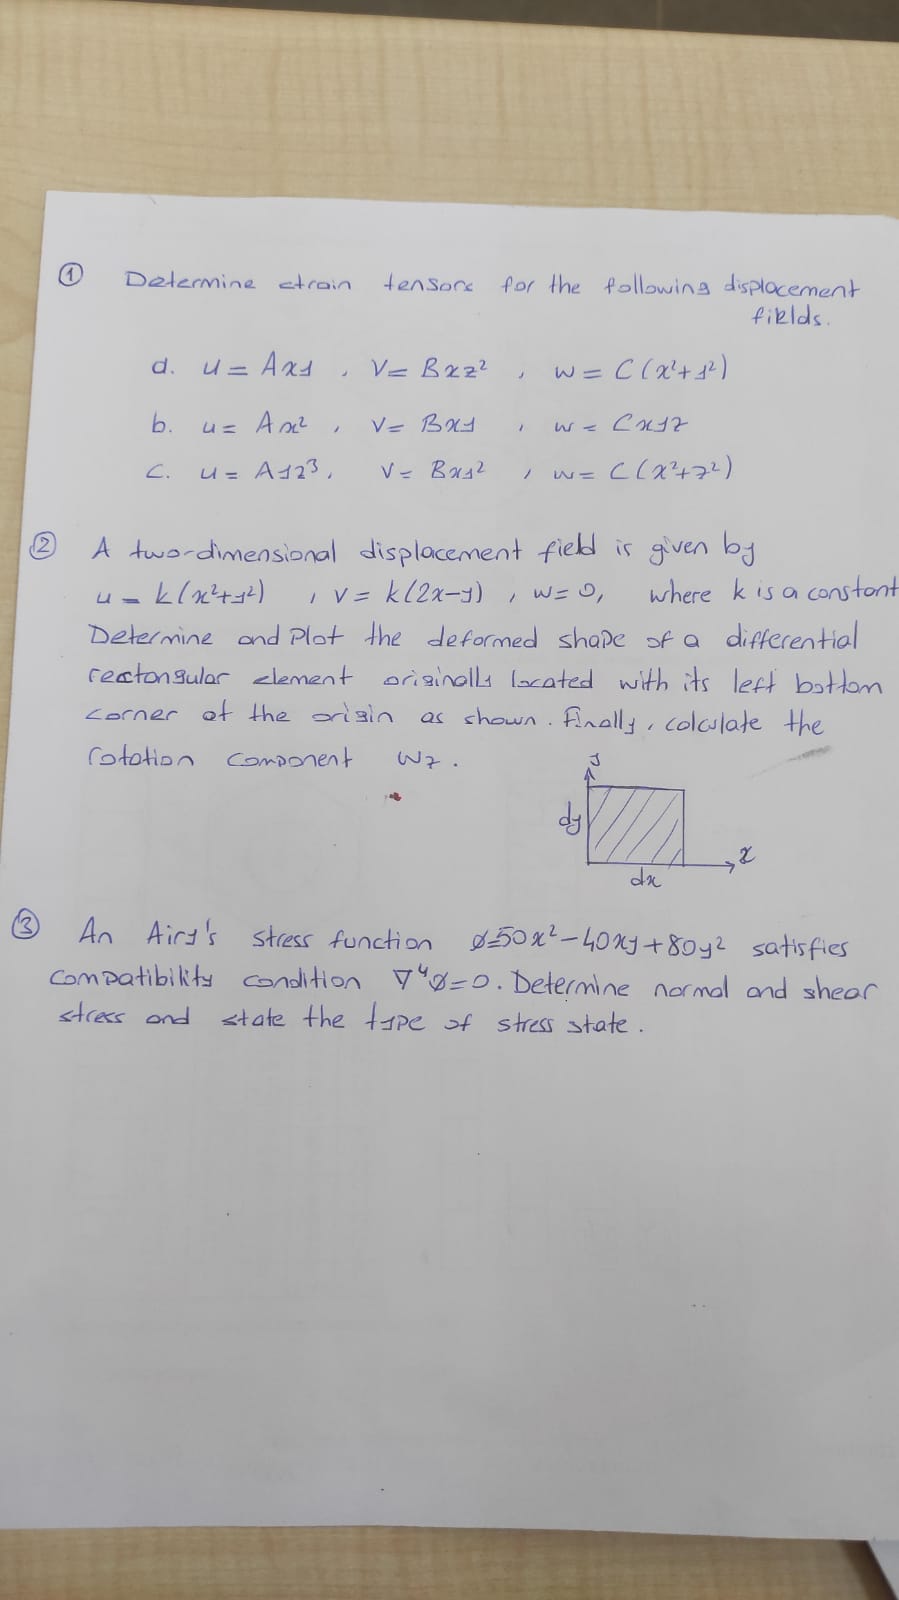 ① Determine strain tensors for the following displacement
fields.
a. u = Axy , V = Bxz² , w = C(x²+y²)
b. u = Ax² , V = Bxy , w = Cxyz
c. u = Ayz³, V = Bxy² , w = C(x²+z²)
② A two-dimensional displacement field is given by
u = k(x²+y²) , V = k(2x-y) , w=0, where k is a constant
Determine and Plot the deformed shape of a differential
rectangular element originally located with its left bottom
corner at the origin as shown. Finally, calculate the
rotation component wz.
y
dy
x
dx
③ An Airy's stress function Ø=50x²-40xy+80y² satisfies
compatibility condition ∇⁴Ø=0. Determine normal and shear
stress and state the type of stress state.